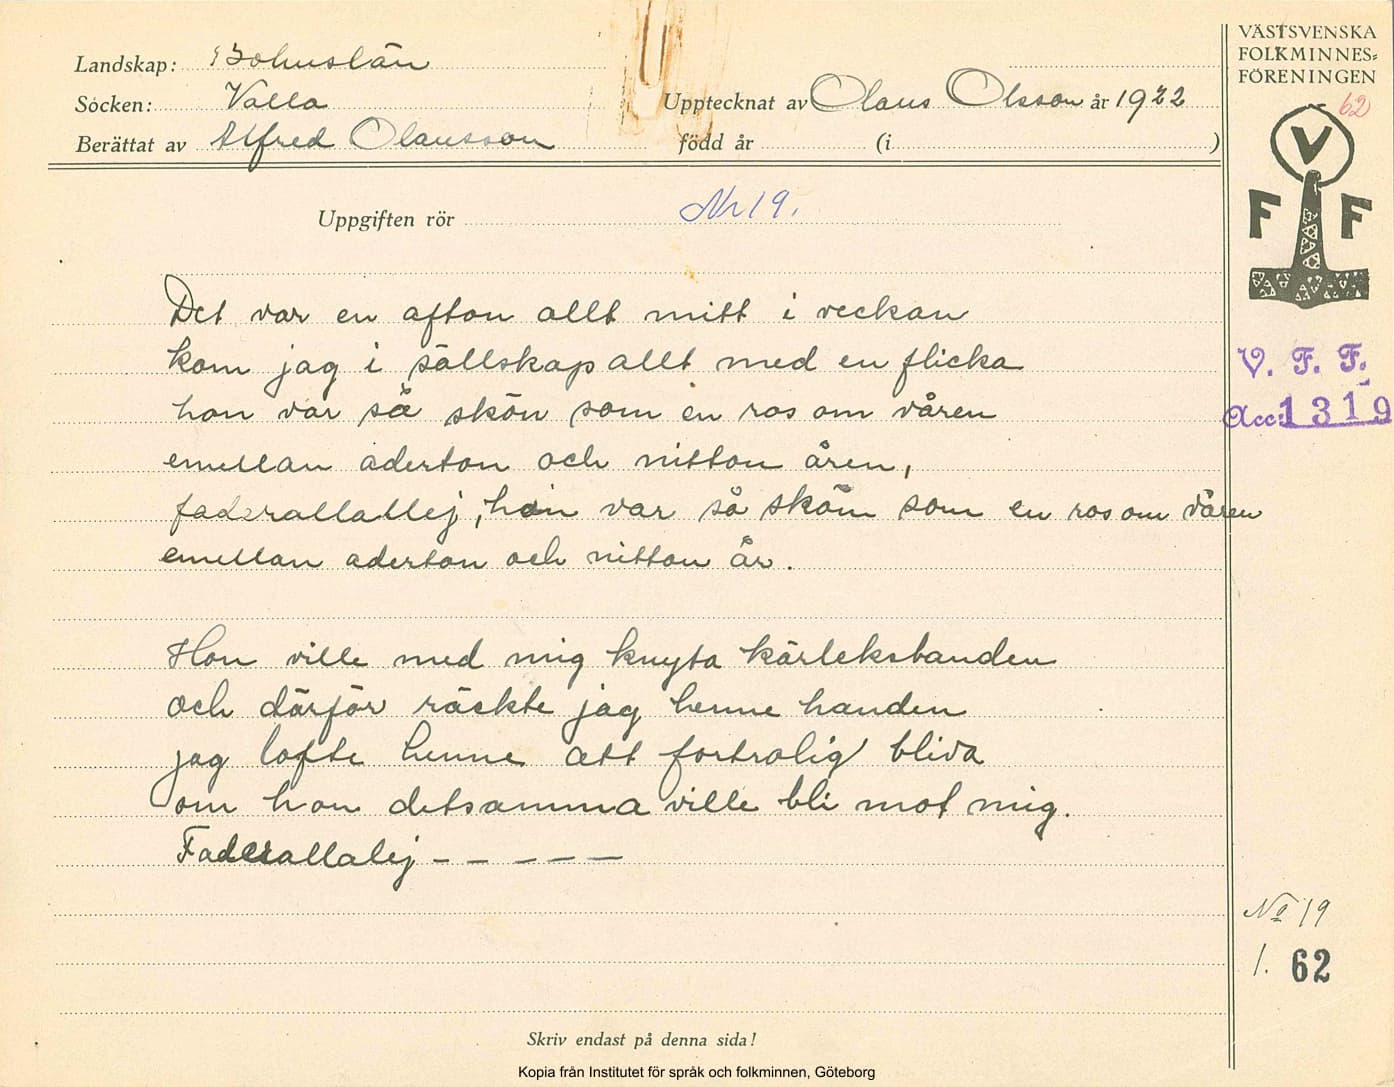 Landskap: Bohuslän
Socken: Valla
Berättat av Alfred Olausson
Upptecknat av Olaus Olsson år 1922
född år (i )
VÄSTSVENSKA
FOLKMINNES=
FÖRENINGEN
62
V
F F
Uppgiften rör Nr 19.
V. F. F.
Acc: 1319
Det var en afton allt mitt i veckan
kom jag i sällskap allt med en flicka
hon var så skön som en ros om våren
emellan aderton och nitton åren,
faderallallej, hon var så skön som en ros om våren
emellan aderton och nitton år.
Hon ville med mig knyta kärleksbanden
och därför räckte jag henne handen
jag lofte henne att fortrolig bliva
om hon detsamma ville bli mot mig.
Faderallalej - - - - -
No 19
1. 62
Skriv endast på denna sida!
Kopia från Institutet för språk och folkminnen, Göteborg